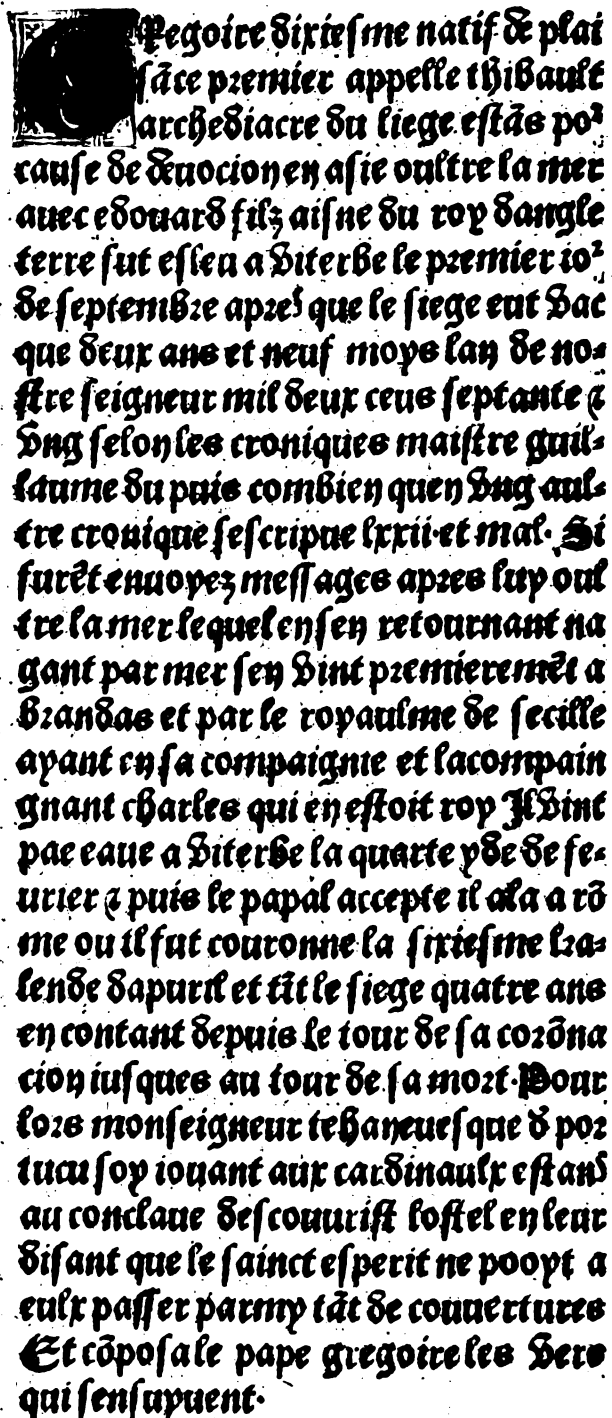 GRegoire dixiesme natif de plai
sãce premier appelle thibault
archediacre du liege estãs po²
cause de deuocion en asie oultre la mer
auec edouard filz aisne du roy dangle
terre fut esleu a viterbe le premier io²
de septembre apres que le siege eut vac
que deux ans et neuf moys lan de no⸗
stre seigneur mil deux cens septante ⁊
vng selon les croniques maistre guil⸗
laume du puis combien quen vng aul⸗
tre cronique sescripue lxxii·et mal· Si
furẽt enuoyez messages apres luy oul
tre la mer lequel en sen retournant na
gant par mer sen vint premieremẽt a
brandas et par le royaulme de secille
ayant en sa compaignie et lacompain
gnant charles qui en estoit roy Il vint
pae eaue a viterbe la quarte yde de fe⸗
urier ⁊ puis le papal accepte il ala a rõ
me ou il fut couronne la sixiesme kra⸗
lende dapuril et tĩt le siege quatre ans
en contant depuis le iour de sa corõna
cion iusques au iour de sa mort·Pour
lors monseigneur iehan euesque d̃ por
tucu soy iouant aux cardinaulx estans
au conclaue descouurist lostel en leur
disant que le sainct esperit ne pooyt a
eulx passer parmy tãt de couuertures
Et cõposa le pape gregoire les vers
qui sensuyuent·